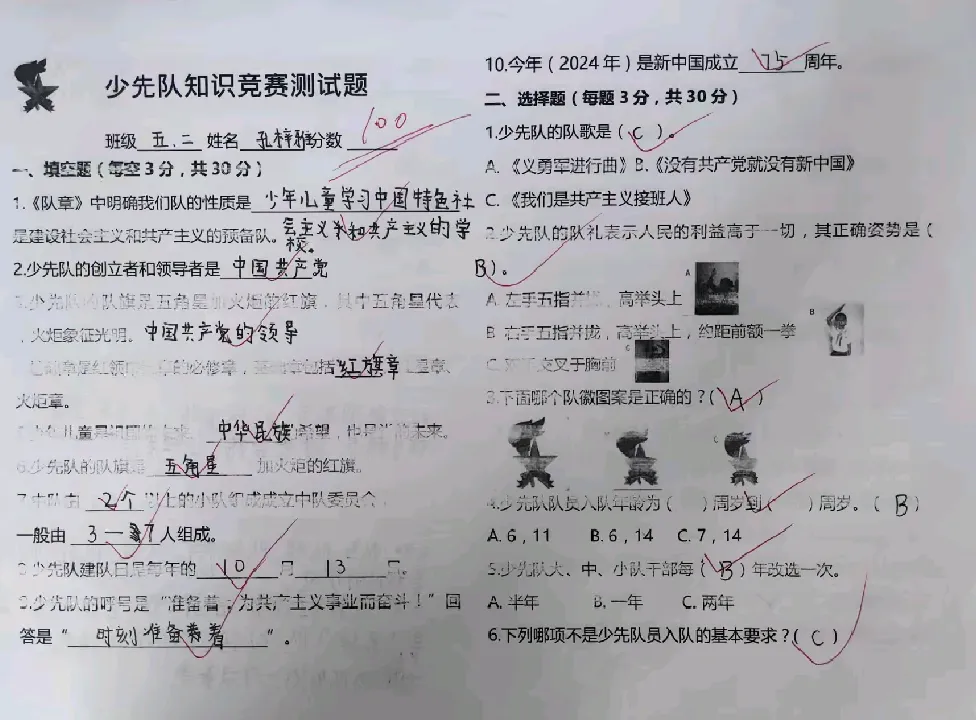 少先队知识竞赛测试题
班级 五.二 姓名 孔梓雅 分数 100
一、填空题(每空3分,共30分)
1.《队章》中明确我们队的性质是 少年儿童学习中国特色社
会主义和共产主义的学校。
是建设社会主义和共产主义的预备队。
2.少先队的创立者和领导者是 中国共产党
3.少先队的队旗是五角星加火炬的红旗,其中五角星代表
,火炬象征光明。中国共产党的领导
章包括 红旗章 、星章、
火炬章。
5.少年儿童是祖国的未来、中华民族的希望,也是 的未来。
6.少先队的队旗是 五角星 加火炬的红旗。
7.中队由 2个 以上的小队组成成立中队委员会,
一般由 3一7 人组成。
8.少先队建队日是每年的 10 月 13 日。
9.少先队的呼号是“准备着,为共产主义事业而奋斗!”回
答是“ 时刻准备着 ”。
10.今年(2024年)是新中国成立 75 周年。
二、选择题(每题3分,共30分)
1.少先队的队歌是( C )。
A.《义勇军进行曲》B.《没有共产党就没有新中国》
C.《我们是共产主义接班人》
2.少先队的队礼表示人民的利益高于一切,其正确姿势是(
B)。
A
A. 左手五指并拢,高举头上
B
B. 右手五指并拢,高举头上,约距前额一拳
C
C. 双手交叉于胸前
3.下面哪个队徽图案是正确的?( A )
4.少先队队员入队年龄为( )周岁到( )周岁。( B )
A. 6,11 B. 6,14 C. 7,14
5.少先队大、中、小队干部每( B )年改选一次。
A. 半年 B. 一年 C. 两年
6.下列哪项不是少先队员入队的基本要求?( C )